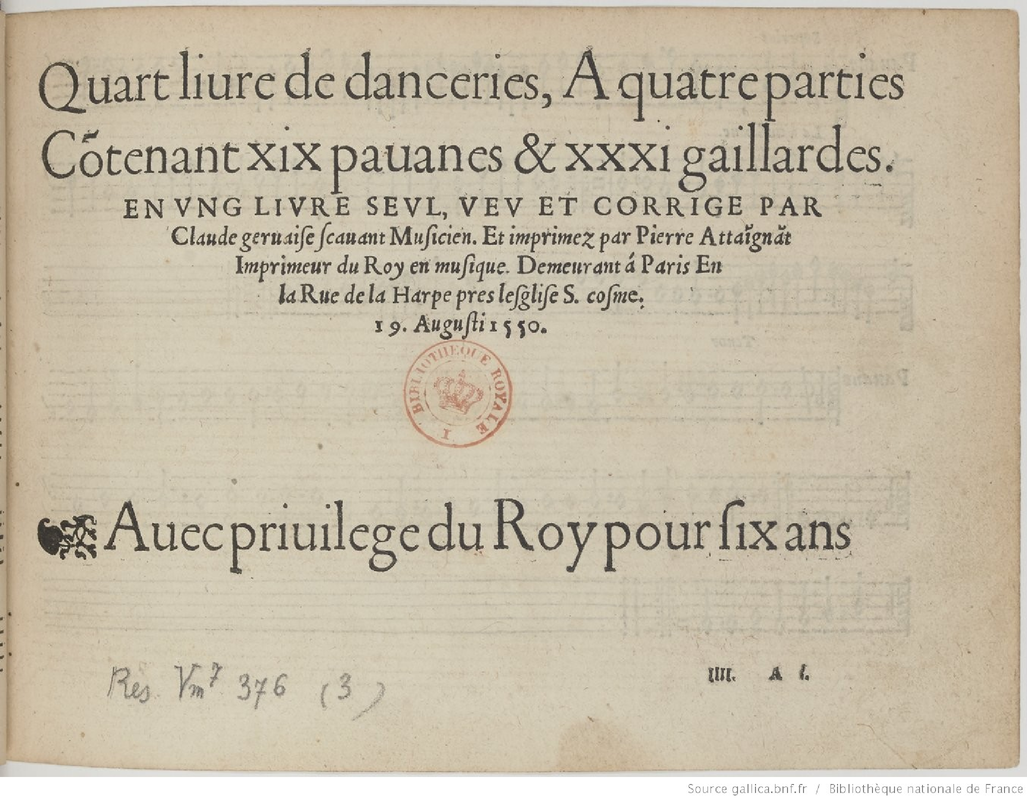 Quart liure de danceries, A quatre parties
Cõtenant xix pauanes & xxxi gaillardes.
EN VNG LIVRE SEVL, VEV ET CORRIGE PAR
Claude geruaiſe ſcauant Muſicien. Et imprimez par Pierre Attaĩgnãt
Imprimeur du Roy en muſique. Demeurant á Paris En
la Rue de la Harpe pres leſgliſe S. coſme.
19. Auguſti 1550.
BIBLIOTHEQUE ROYALE
I
Auec priuilege du Roy pour ſix ans
Res Vm⁷ 376 (3)
IIII. A i.
Source gallica.bnf.fr / Bibliothèque nationale de France